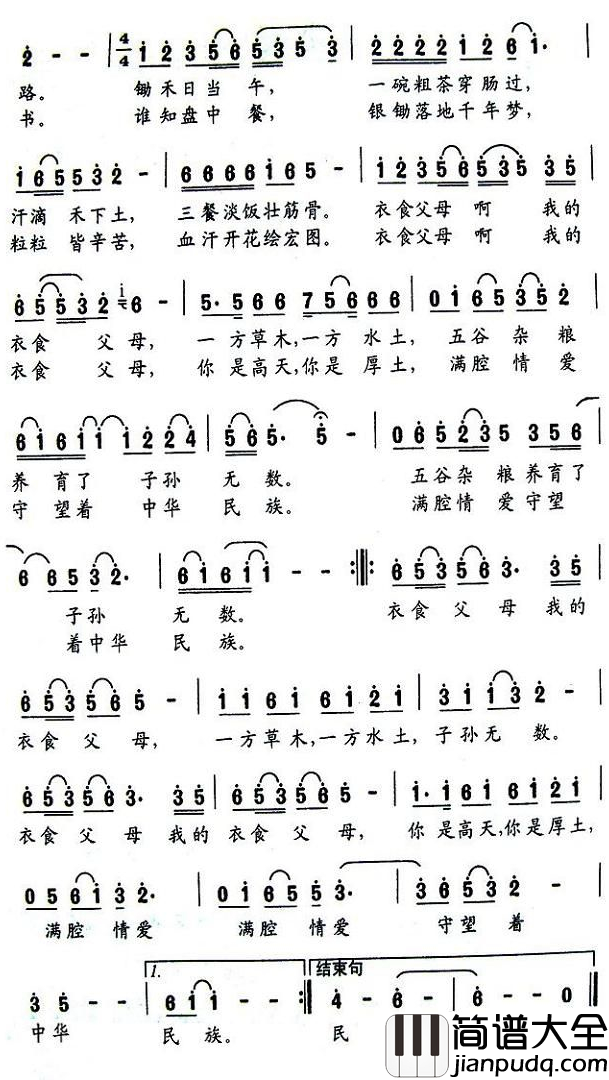 路。 锄禾日当 午， 一碗粗茶穿肠过，
书。 谁知盘中 餐， 银锄落地千年梦，
汗滴 禾下土， 三餐淡饭壮筋骨。 衣食父母 啊 我的
粒粒 皆辛苦， 血汗开花绘宏图。 衣食父母 啊 我的
衣食 父 母， 一方草木，一方 水土， 五谷 杂 粮
衣食 父 母， 你是高天，你是 厚土， 满腔 情 爱
养 育了 子孙 无 数。 五谷杂 粮养育了
守 望着 中华 民 族。 满腔情 爱守望
子孙 无 数。 衣食 父 母 我的
着中华 民 族。
衣食 父 母， 一方草木，一方水土， 子孙无 数。
衣食 父 母 我的 衣食 父 母， 你是高天，你是厚土，
满腔 情爱 满腔 情爱 守望 着
1. 结束句
中华 民 族。 民
简谱大全
jianpudq.com